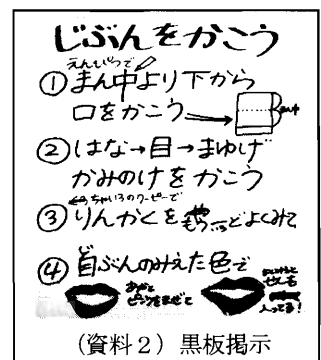 じぶんをかこう
えんぴつで
①まん中より下から
口をかこう
まん中
②はな→目→まゆげ
かみのけをかこう
ちゃいろのクーピーで
③りんかくをもういちどよくみて
④自ぶんのみえた色で
あかと
ピンクをまぜて
入ってる!
(資料2)黒板掲示